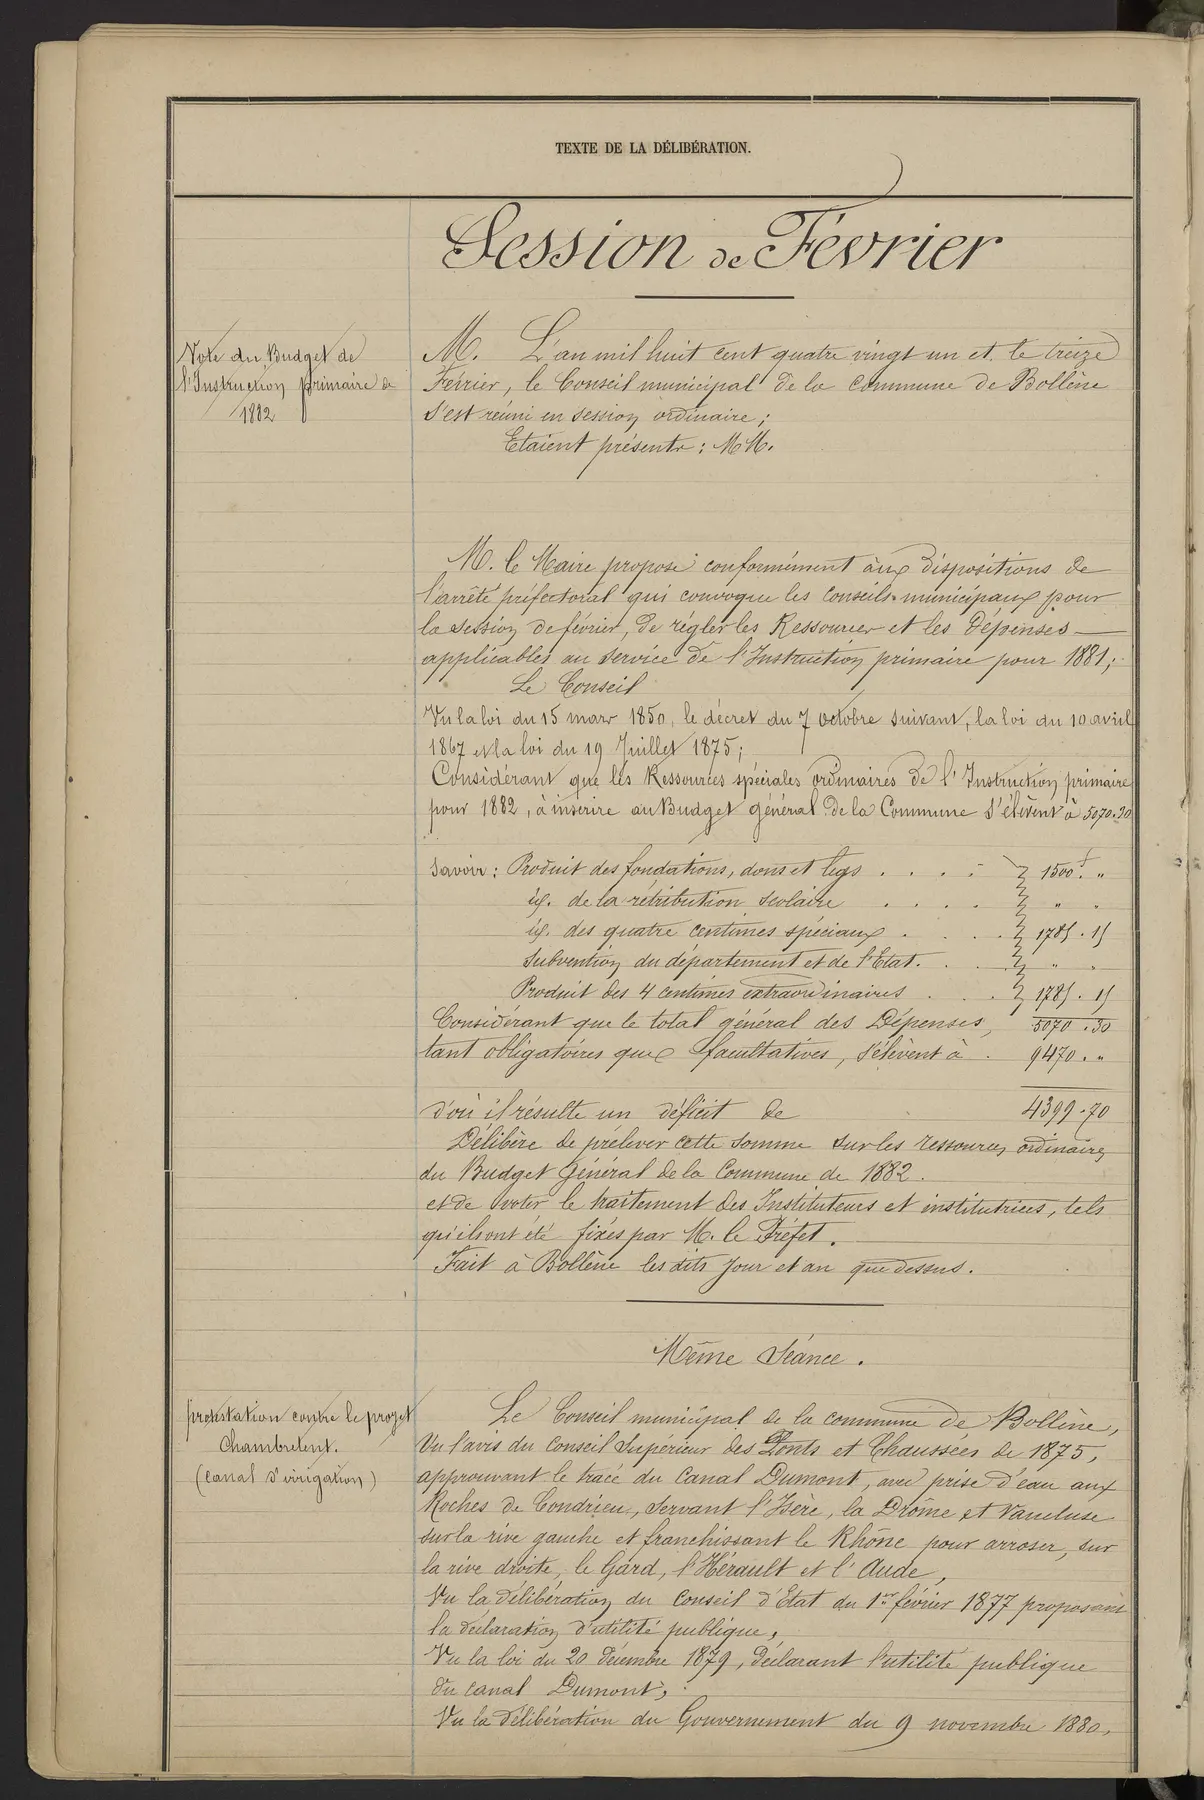 TEXTE DE LA DÉLIBÉRATION.
Session de Février
Vote du Budget de
l'Instruction primaire de
1882
M. L'an mil huit cent quatre vingt un et le treize
Février, le Conseil municipal de la commune de Bollène
s'est réuni en session ordinaire;
Etaient présents: MM.
M. le Maire propose conformément aux dispositions de
l'arrêté préfectoral qui convoque les Conseils municipaux pour
la session de février, de régler les Ressources et les Dépenses
applicables au service de l'Instruction primaire pour 1881;
Le Conseil
Vu la loi du 15 mars 1850, le décret du 7 octobre suivant, la loi du 10 avril
1867 et la loi du 19 Juillet 1875;
Considérant que les Ressources spéciales ordinaires de l'Instruction primaire
pour 1882, à inscrire au Budget général de la Commune s'élèvent à 5070.30
Savoir: Produit des fondations, dons et legs . . . . 1500f. "
id. de la rétribution scolaire . . . . " "
id. des quatre centimes spéciaux . . . 1785.15
Subvention du département et de l'Etat. . . " "
Produit des 4 centimes extraordinaires . . . 1785.15
Considérant que le total général des Dépenses, 5070.30
tant obligatoires que facultatives, s'élèvent à . 9470. "
d'où il résulte un déficit de 4399.70
Délibère de prélever cette somme sur les ressources ordinaires
du Budget Général de la Commune de 1882.
et de voter le traitement des Instituteurs et institutrices, tels
qu'ils ont été fixés par M. le Préfet.
Fait à Bollène les dits jour et an que dessus.
Même Séance.
protestation contre le projet
Chambrelent.
(canal d'irrigation)
Le Conseil municipal de la commune de Bollène,
Vu l'avis du Conseil Supérieur des Ponts et Chaussées de 1875,
approuvant le tracé du Canal Dumont, avec prise d'eau aux
Roches de Condrieu, servant l'Isère, la Drôme et Vaucluse
sur la rive gauche et franchissant le Rhône pour arroser, sur
la rive droite, le Gard, l'Hérault et l'Aude,
Vu la délibération du Conseil d'Etat du 1er février 1877 proposant
la déclaration d'utilité publique,
Vu la loi du 20 Décembre 1879, déclarant l'utilité publique
du canal Dumont,
Vu la Délibération du Gouvernement du 9 novembre 1880,